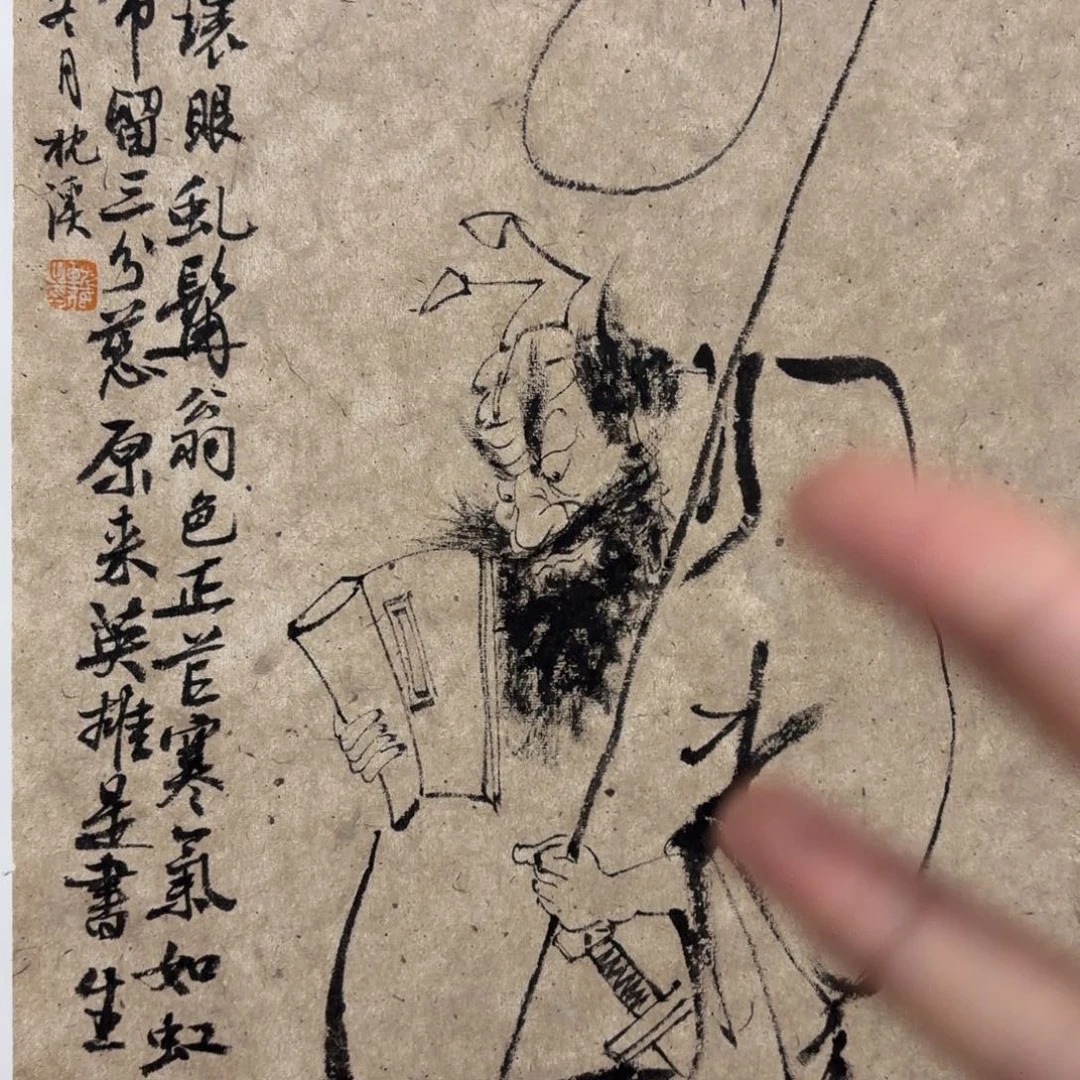 環眼虬髯翁色正芒寒氣如虹
留三分慈原来英雄是書生
冬月枕溪